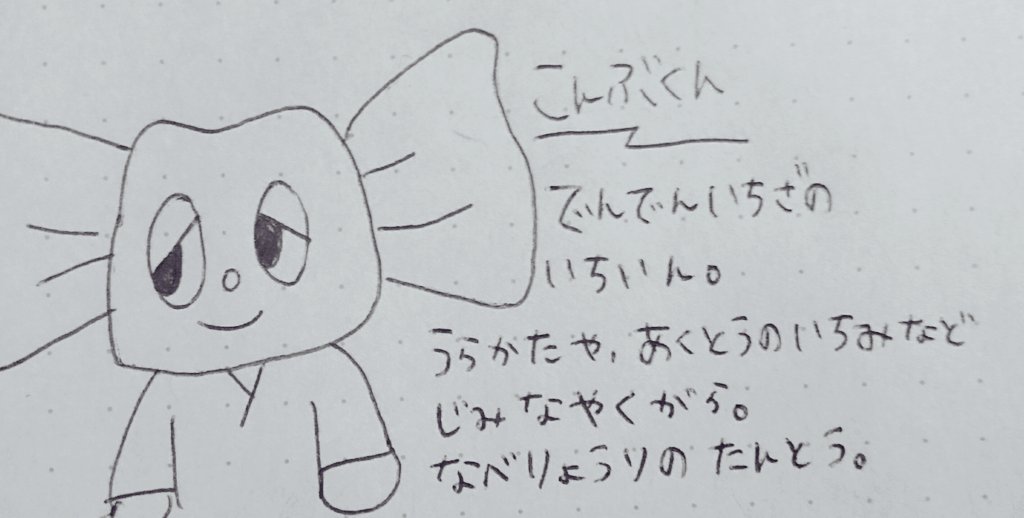 こんぶくん
でんでんいちざの
いちいん。
うらかたや、あくとうのいちみなど
じみなやくがら。
なべりょうりのたんとう。